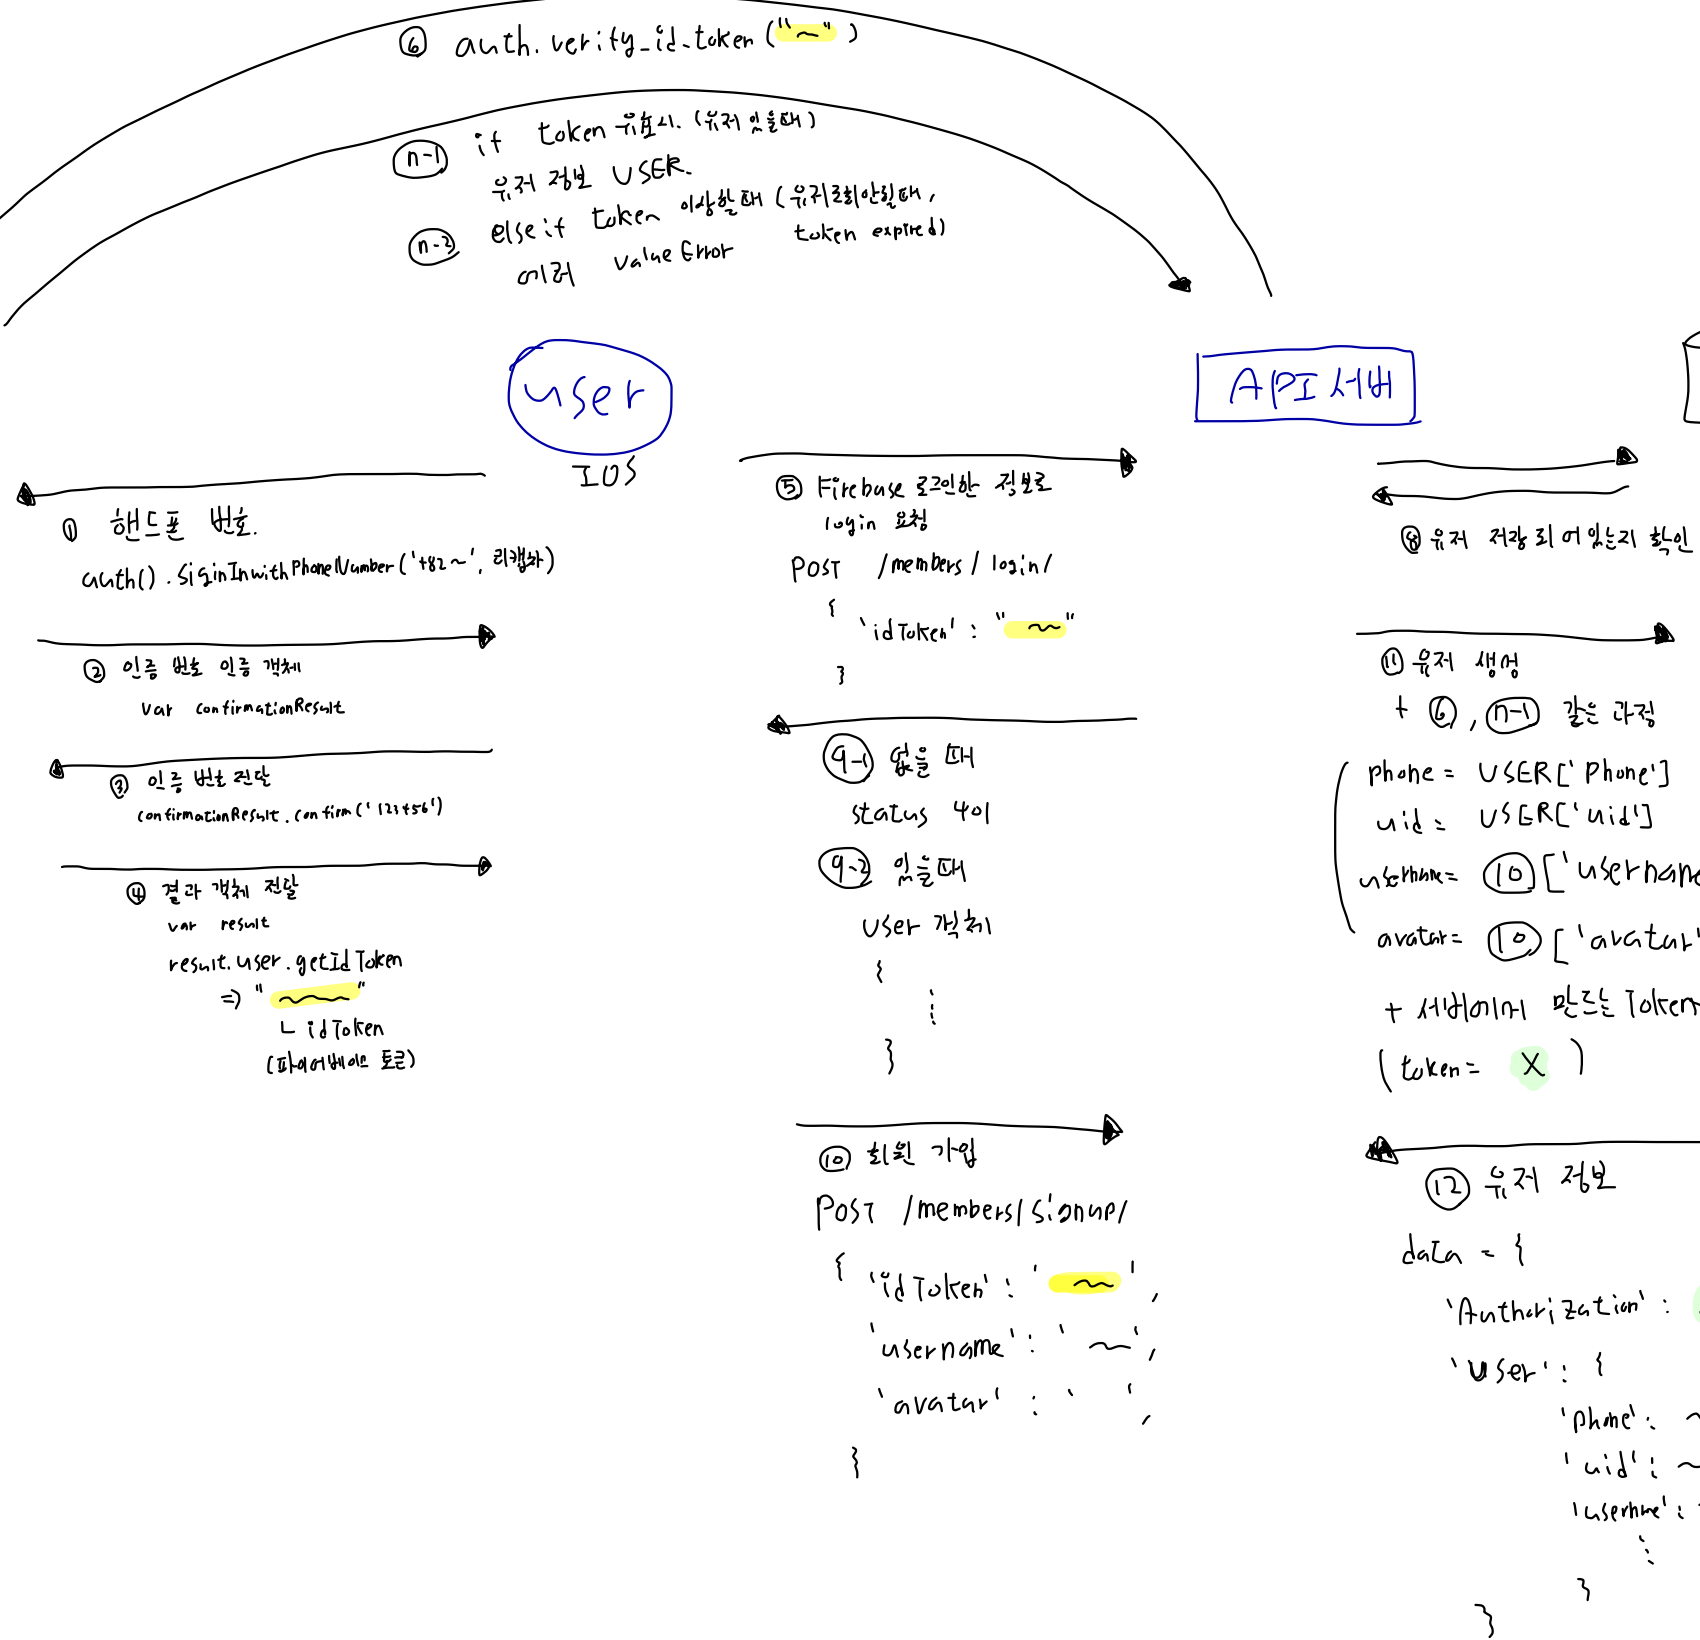 ⑥ auth.verify_id_token("~")
n-1 if token 유효시. (유저 있을때)
유저 정보 USER.
n-2 else if token 이상할때 (유저조회안될때,
token expired)
에러 Value Error
user
IOS
API 서버
① 핸드폰 번호.
auth().SiginInwithPhoneNumber('+82~', 리캡챠)
② 인증 번호 인증 객체
var confirmationResult
③ 인증 번호 전달
confirmationResult.confirm('123456')
④ 결과 객체 전달
var result
result.user.getIdToken
=> "~"
ㄴ idToken
(파이어베이스 토큰)
⑤ Firebase 로그인한 정보로
login 요청
POST /members/login/
{
'idToken' : "~"
}
9-1 없을 때
status 401
9-2 있을때
user 객체
{
⋮
}
⑩ 회원 가입
POST /members/signup/
{
'idToken' : '~',
'username' : '~',
'avatar' : ' ',
}
⑧ 유저 저장 되어 있는지 확인
⑪ 유저 생성
+ ⑥, n-1 같은 과정
phone = USER['Phone']
uid = USER['uid']
username= ⑩['username
avatar= ⑩['avatar'
+ 서버에서 만드는 Token
(token= X )
⑫ 유저 정보
data = {
'Authorization' :
'user' : {
'phone' : ~
'uid' : ~
'username' :
⋮
}
}